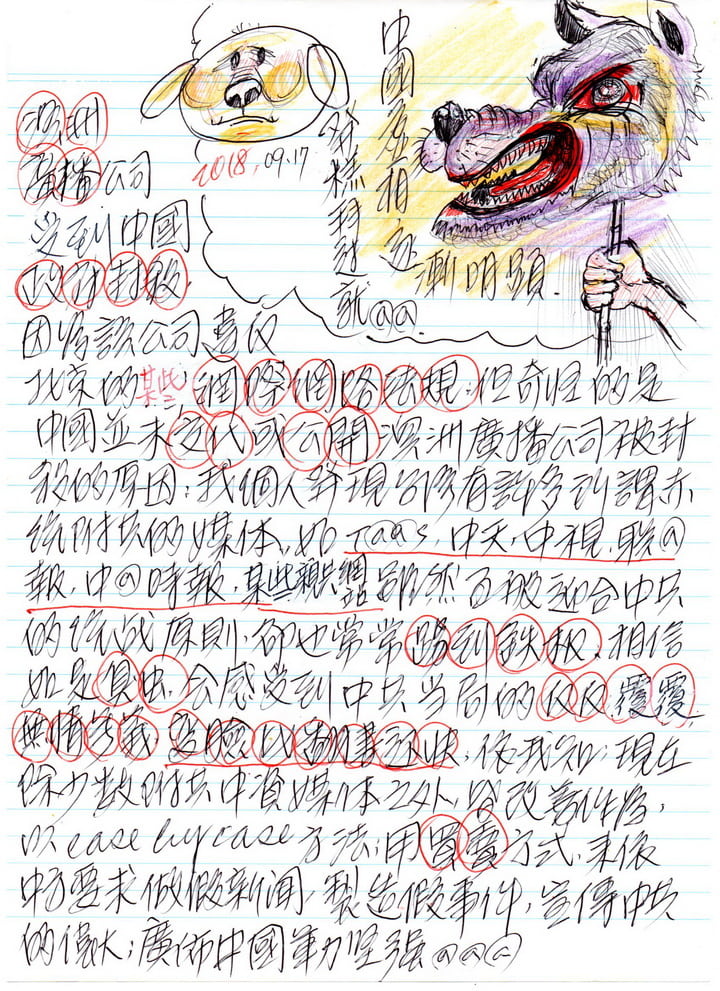 中國真相逐漸明顯.
發燒封過就@@.
2018.09.17
澳洲
廣播公司
受到中國
政府封殺.
因為該公司違反
北京的某些網際網路法規,但奇怪的是
中國並未交代或公開澳洲廣播公司被封
殺的原因;我個人發現台灣有許多到謂亦
統附共的媒体,如T@@S,中天,中視,聯@
報,中@時報,某些親共網站雖然百般迎合中共
的統战原則,卻也常常踢到鉄板,相信
如是
會感受到中共當局的反反覆覆
無情
依我知;現在
除少數附共中資媒体之外,皆改善作為,
以case by case方法;用買賣方式,来依
中方要求做假新闻,製造假事件,宣傳中共
的偉大;廣佈中國軍力坚強@@@